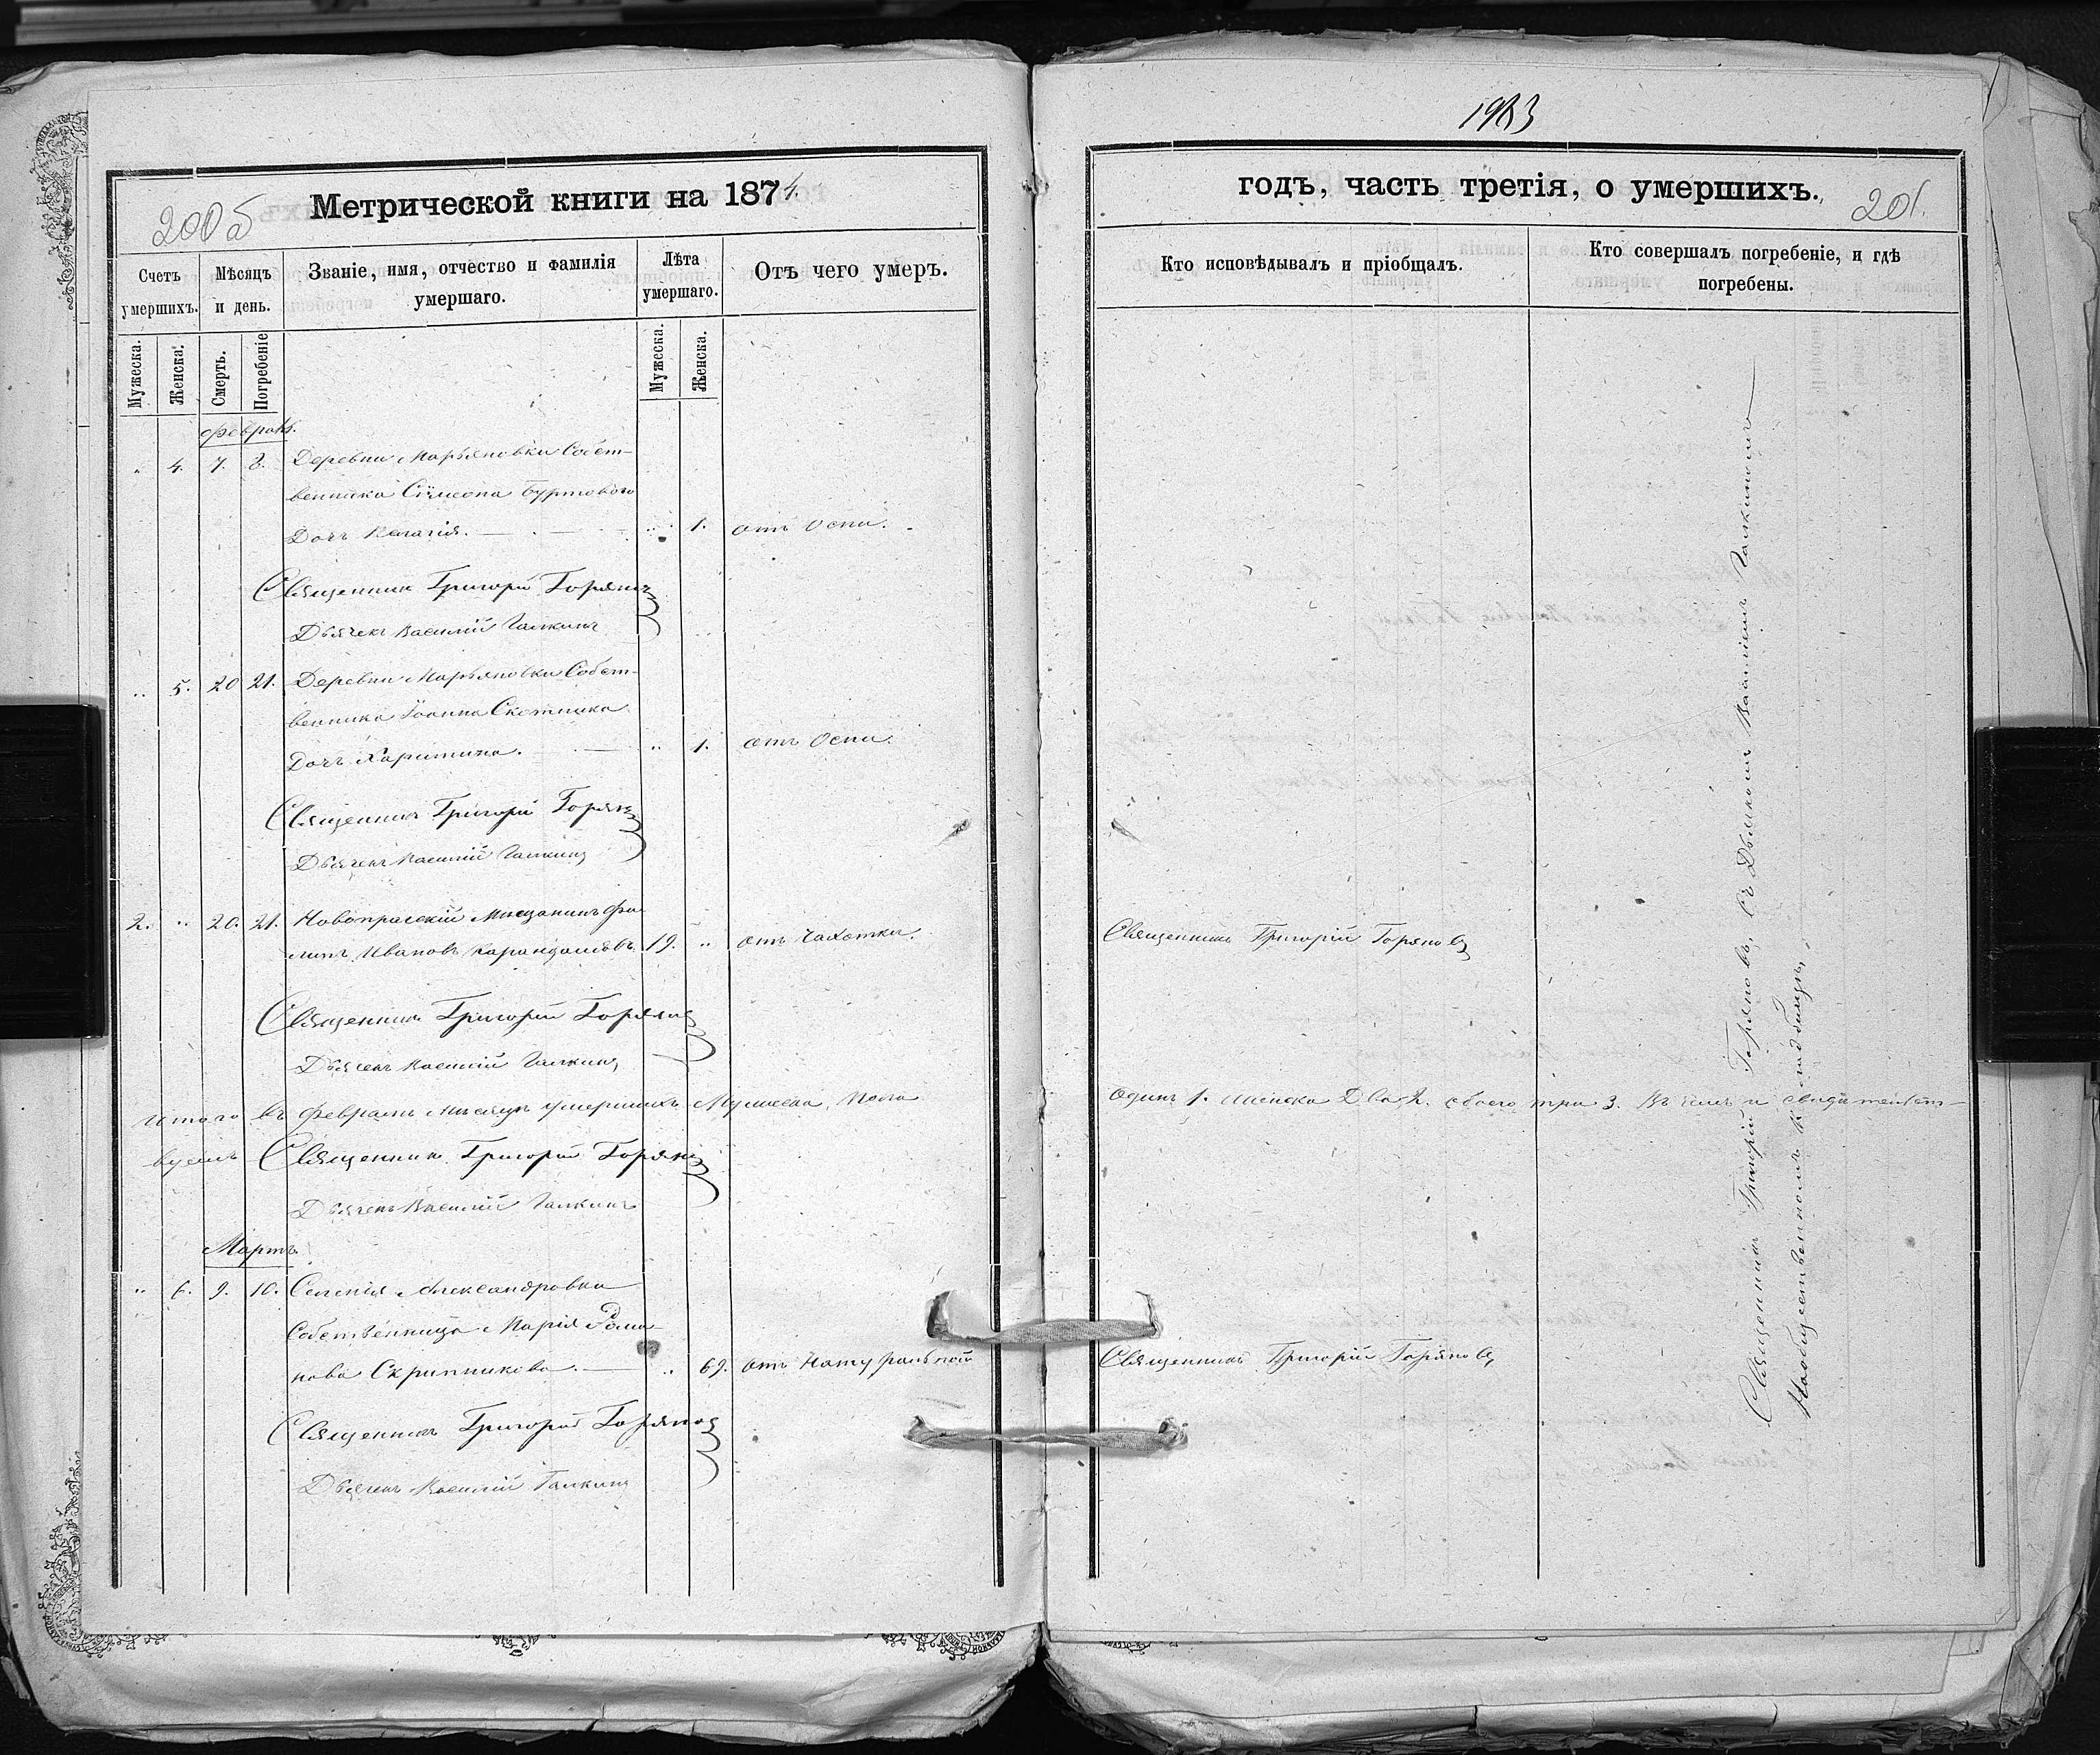 1983
200б
Метрической книги на 1874
Счетъ умершихъ.
Мѣсяцъ и день.
Званіе, имя, отчество и фамилія умершаго.
Лѣта умершаго.
Отъ чего умеръ.
Мужеска.
Женска.
Смерть.
Погребеніе
Мужеска.
Женска.
Февраль.
" 4. 7. 8. Деревни Марьяновки Собст-
венника Сѵмеона Буртового
Дочь Пелагія. " 1. отъ Оспи.
Священник Григорій Горянов
Дьячекъ Василій Галкинъ
" 5. 20 21. Деревни Марьяновки Собст-
венника Іоанна Скотника
Дочь Харитина. " 1. отъ Оспи.
Священникъ Григорій Горянов
Дьячекъ Василій Галкинъ
2. " 20. 21. Новопрагскій Мѣщанинъ Фи-
липъ Ивановъ 19. " отъ Чахотки.
Священникъ Григорій Горянов
Дьячекъ Василій Галкинъ
Итого въ Февралѣ мѣсяцѣ умершихъ Мужеска Пола
вуемъ Священник Григорій Горянов
Дьячекъ Василій Галкинъ
Мартъ
" 6. 9. 10. Селенія Александровки
Собственница Марія Рома-
нова Скрипникова. " 69. отъ Натуральной
Священникъ Григорій Горянов
Дьячекъ Василій Галкинъ
годъ, часть третія, о умершихъ.
201.
Кто исповѣдывалъ и пріобщалъ.
Кто совершалъ погребеніе, и гдѣ погребены.
Священникъ Григорій Горяновъ
Одинъ 1. женска Два 2. обоего три 3. Въ чемъ и свидѣтельст-
Священникъ Григорій Горяновъ
Священникъ Григорій Горяновъ, съ Дьячкомъ Василіемъ Галкинымъ
На общественномъ кладбищѣ,